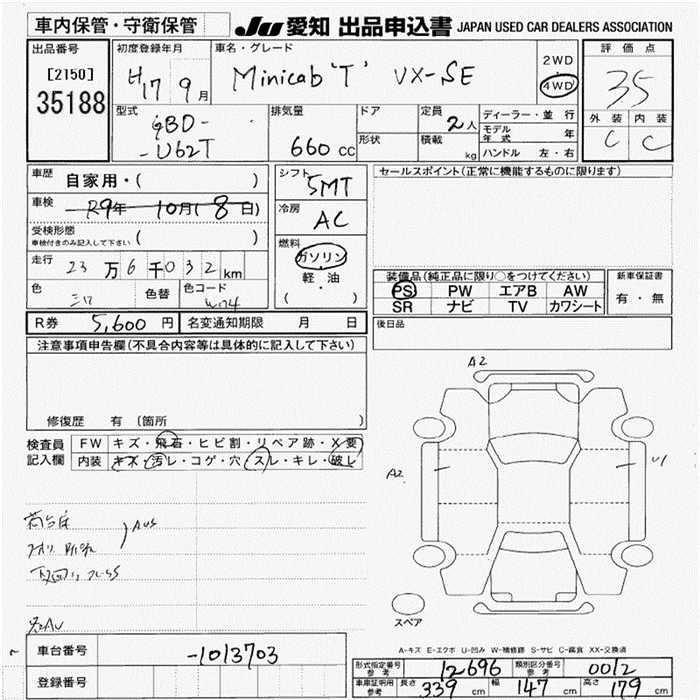 車内保管・守衛保管
JU 愛知 出品申込書 JAPAN USED CAR DEALERS ASSOCIATION
出品番号
[2150]
35188
初度登録年月
H17 9月
車名・グレード
Minicab 'T' VX-SE
2WD
4WD
評価点
35
外装 内装
C C
型式
GBD-
-U62T
排気量
660 cc
ドア
形状
定員
2人
積載
kg
ディーラー・並行
モデル年式 年
ハンドル 左・右
車歴
自家用・( )
車検
R9年 10月(8日)
受検形態
車検付きのみ記入して下さい ( )
走行
23万6千032km
色
色替
色コード
W74
シフト
5MT
冷房
AC
燃料
ガソリン
軽・油
( )
セールスポイント(正常に機能するものに限ります)
装備品(純正品に限り○をつけてください)
PS PW エアB AW
SR ナビ TV カワシート
新車保証書
有・無
R券 5,600円
名変通知期限 月 日
後日品
注意事項申告欄(不具合内容等は具体的に記入して下さい)
修復歴 有 (箇所 )
検査員
記入欄
FW キズ・飛石・ヒビ割・リペア跡・X要
内装 キズ・汚レ・コゲ・穴・スレ・キレ・破レ
荷台床
A2
A2
U1
スペア
A-キズ E-エクボ U-凹み W-補修跡 S-サビ C-腐食 XX-交換済
車台番号
-1013703
登録番号
形式指定番号
参考
12696
類別区分番号
参考
0012
車庫証明用
参考
長さ 339 cm 幅 147 cm 高さ 179 cm